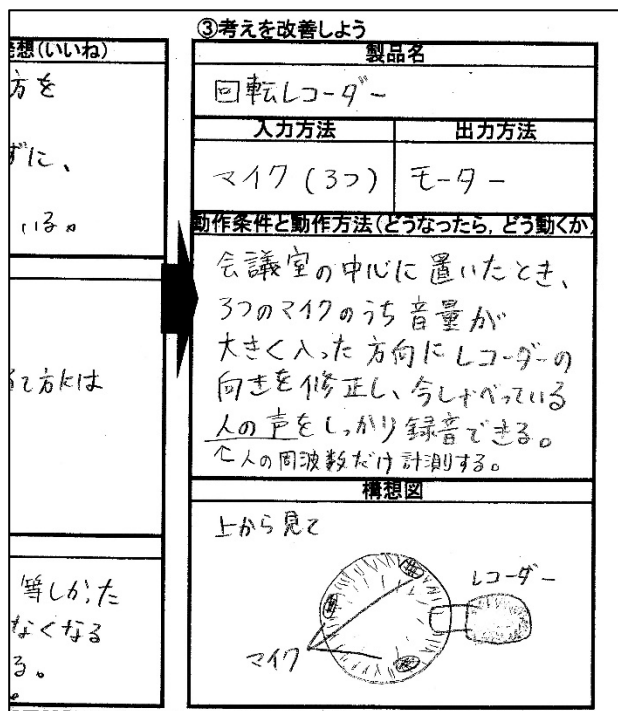 発想(いいね)
方を
ずに、
いる。
て方には
等しかった
なくなる
る。
③考えを改善しよう
製品名
回転レコーダー
入力方法
出力方法
マイク(3つ)
モーター
動作条件と動作方法(どうなったら,どう動くか)
会議室の中心に置いたとき、
3つのマイクのうち音量が
大きく入った方向にレコーダーの
向きを修正し、今しゃべっている
人の声をしっかり録音できる。
↑人の周波数だけ計測する。
構想図
上から見て
レコーダー
マイク